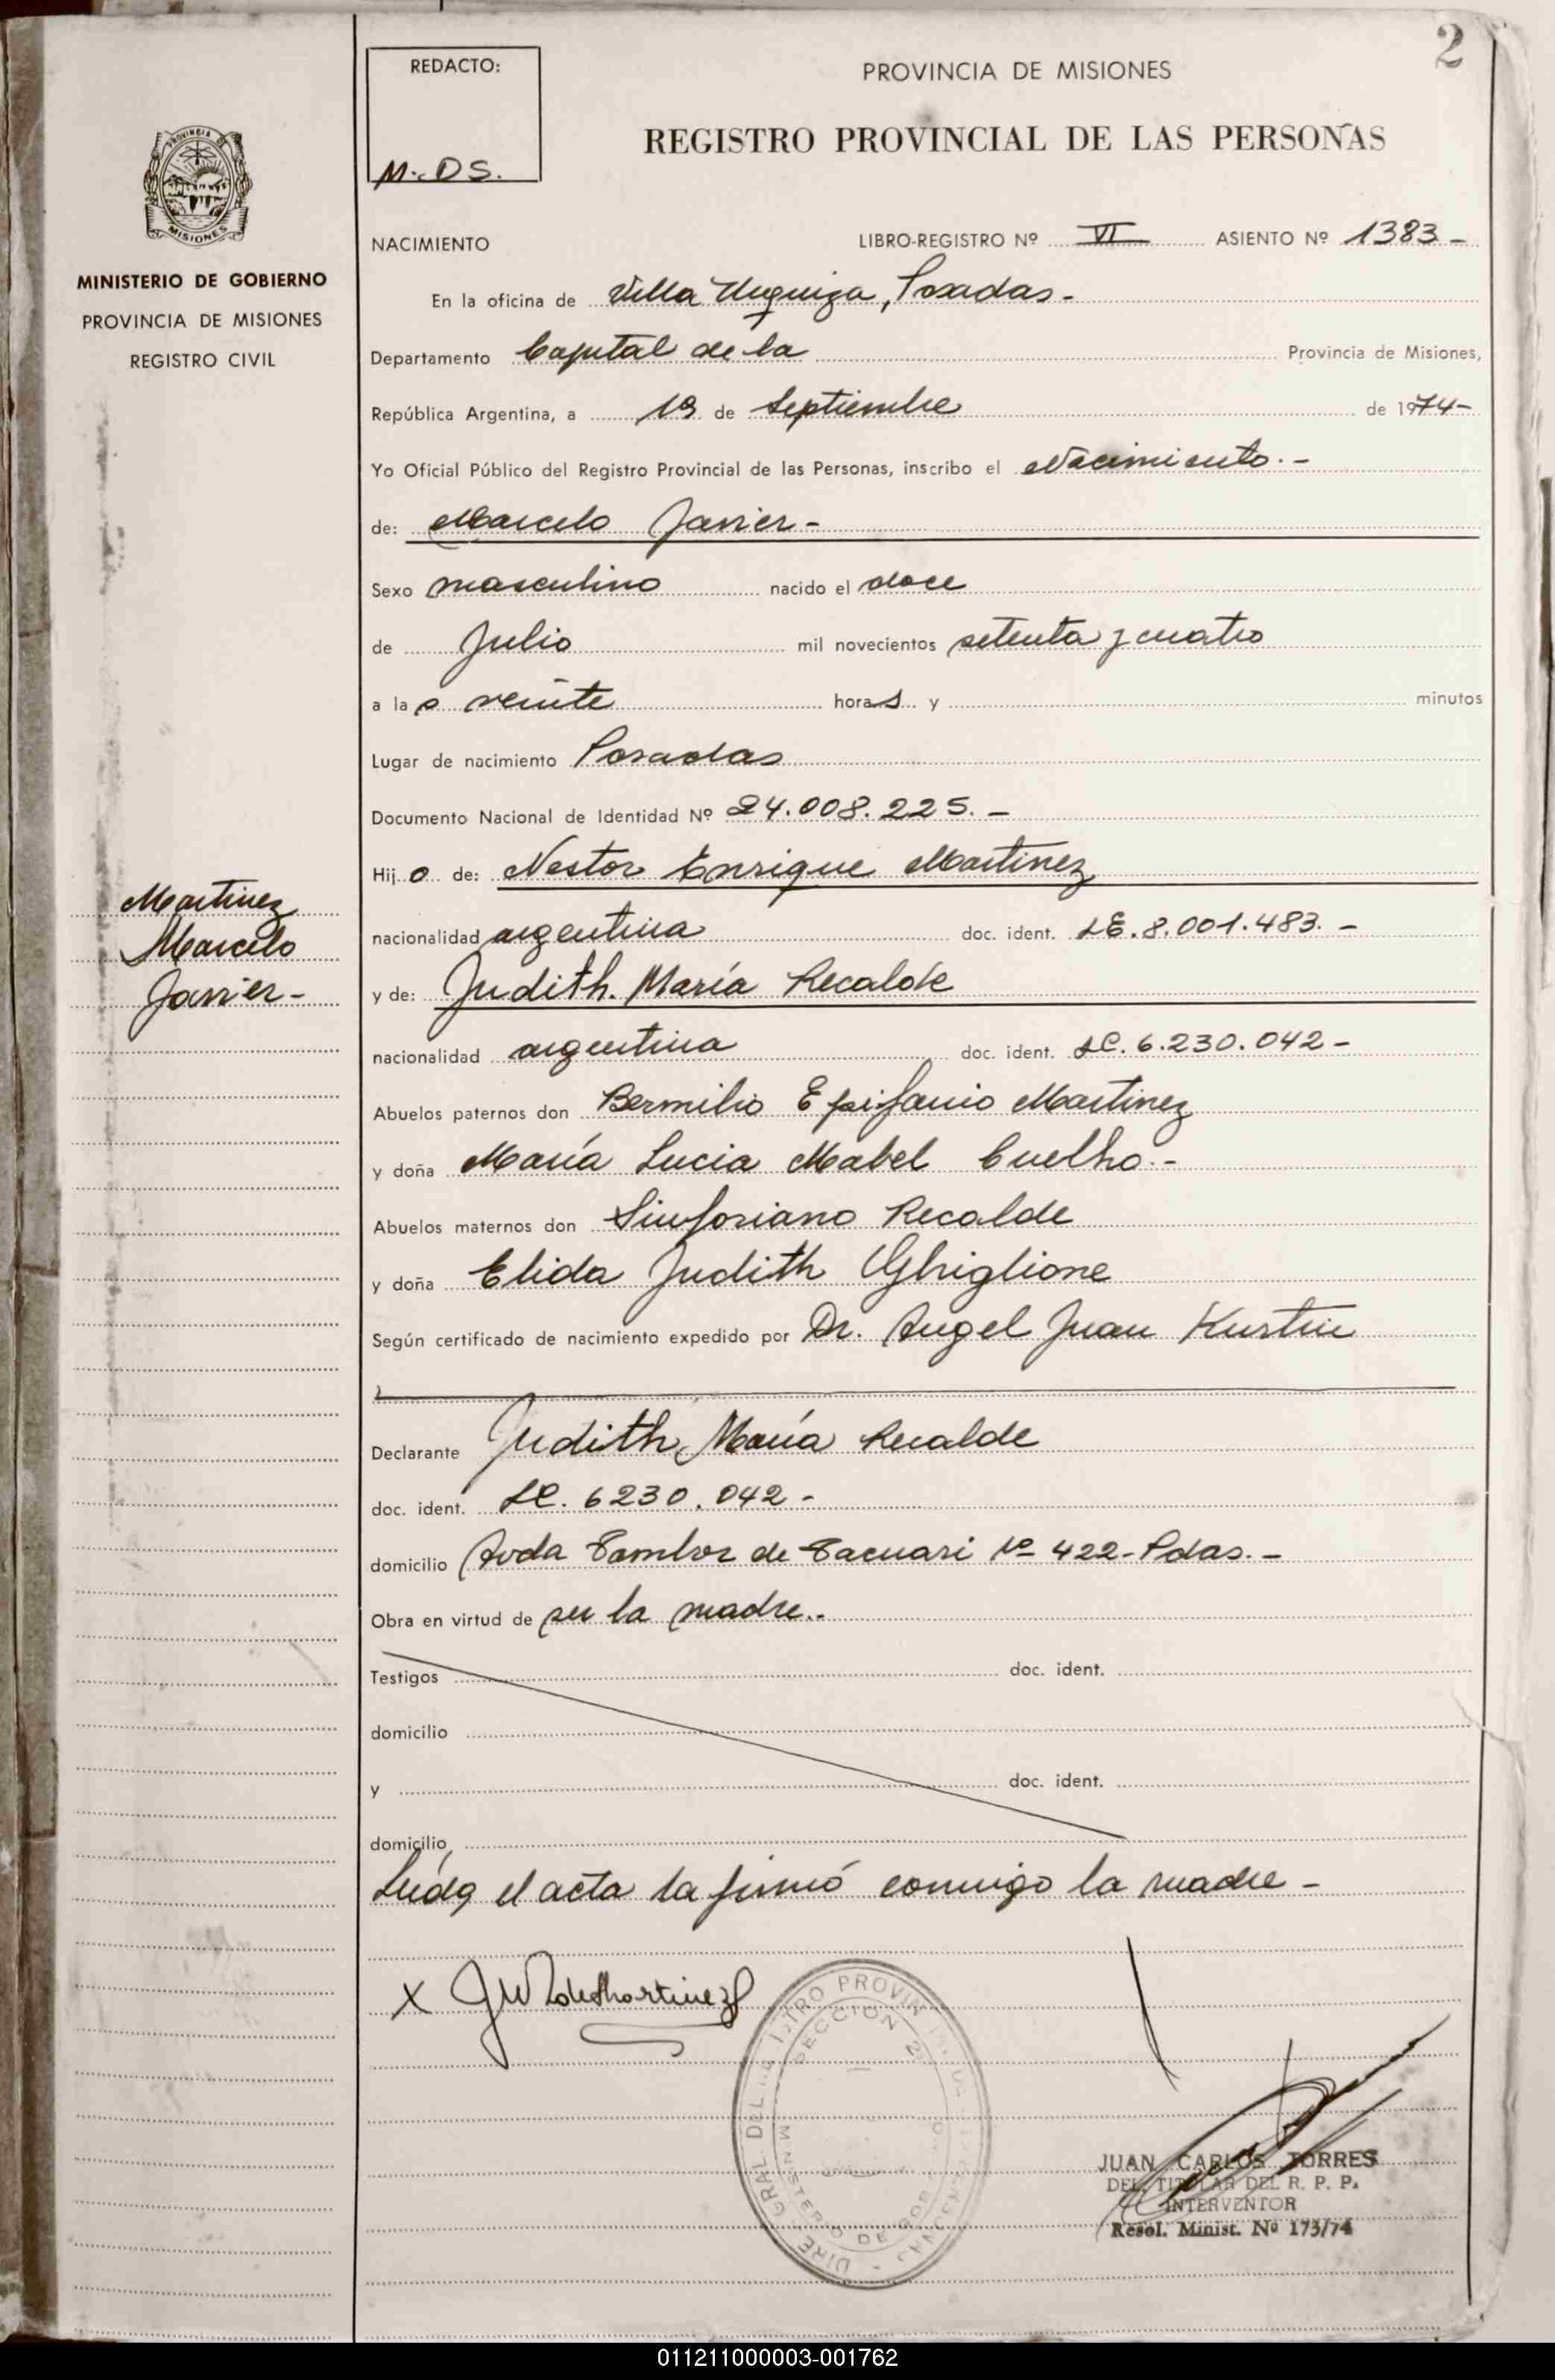 2
REDACTO:
M. DS.
PROVINCIA DE MISIONES
REGISTRO PROVINCIAL DE LAS PERSONAS
PROVINCIA
MISIONES
MINISTERIO DE GOBIERNO
PROVINCIA DE MISIONES
REGISTRO CIVIL
Martinez
Marcelo
Javier-
NACIMIENTO LIBRO-REGISTRO Nº VI ASIENTO Nº 1383-
En la oficina de Villa Urquiza, Posadas-
Departamento Capital de la Provincia de Misiones,
República Argentina, a 19 de Septiembre de 1974-
Yo Oficial Público del Registro Provincial de las Personas, inscribo el Nacimiento.-
de: Marcelo Javier-
Sexo masculino nacido el doce
de Julio mil novecientos setenta y cuatro
a las veinte horas y minutos
Lugar de nacimiento Posadas
Documento Nacional de Identidad Nº 24.008.225.-
Hijo de: Nestor Enrique Martinez
nacionalidad argentina doc. ident. LE.8.001.483.-
y de: Judith María Recalde
nacionalidad argentina doc. ident. LC.6.230.042-
Abuelos paternos don Bermilio Epifanio Martinez
y doña María Lucia Mabel Cuelho.-
Abuelos maternos don Sinforiano Recalde
y doña Elida Judith Ghiglione
Según certificado de nacimiento expedido por Dr. Angel Juan
Declarante Judith María Recalde
doc. ident. LC. 6230.042-
domicilio Avda Tambor de Tacuari Nº 422-Pdas.-
Obra en virtud de ser la madre.-
Testigos doc. ident.
domicilio
y doc. ident.
domicilio
Leída el acta la firmó conmigo la madre-
X deMartinez
SECCION 2
MINISTERIO DE GOB
JUAN CARLOS TORRES
DEL. TITULAR DEL R. P. P.
INTERVENTOR
Resol. Minist. Nº 173/74
011211000003-001762